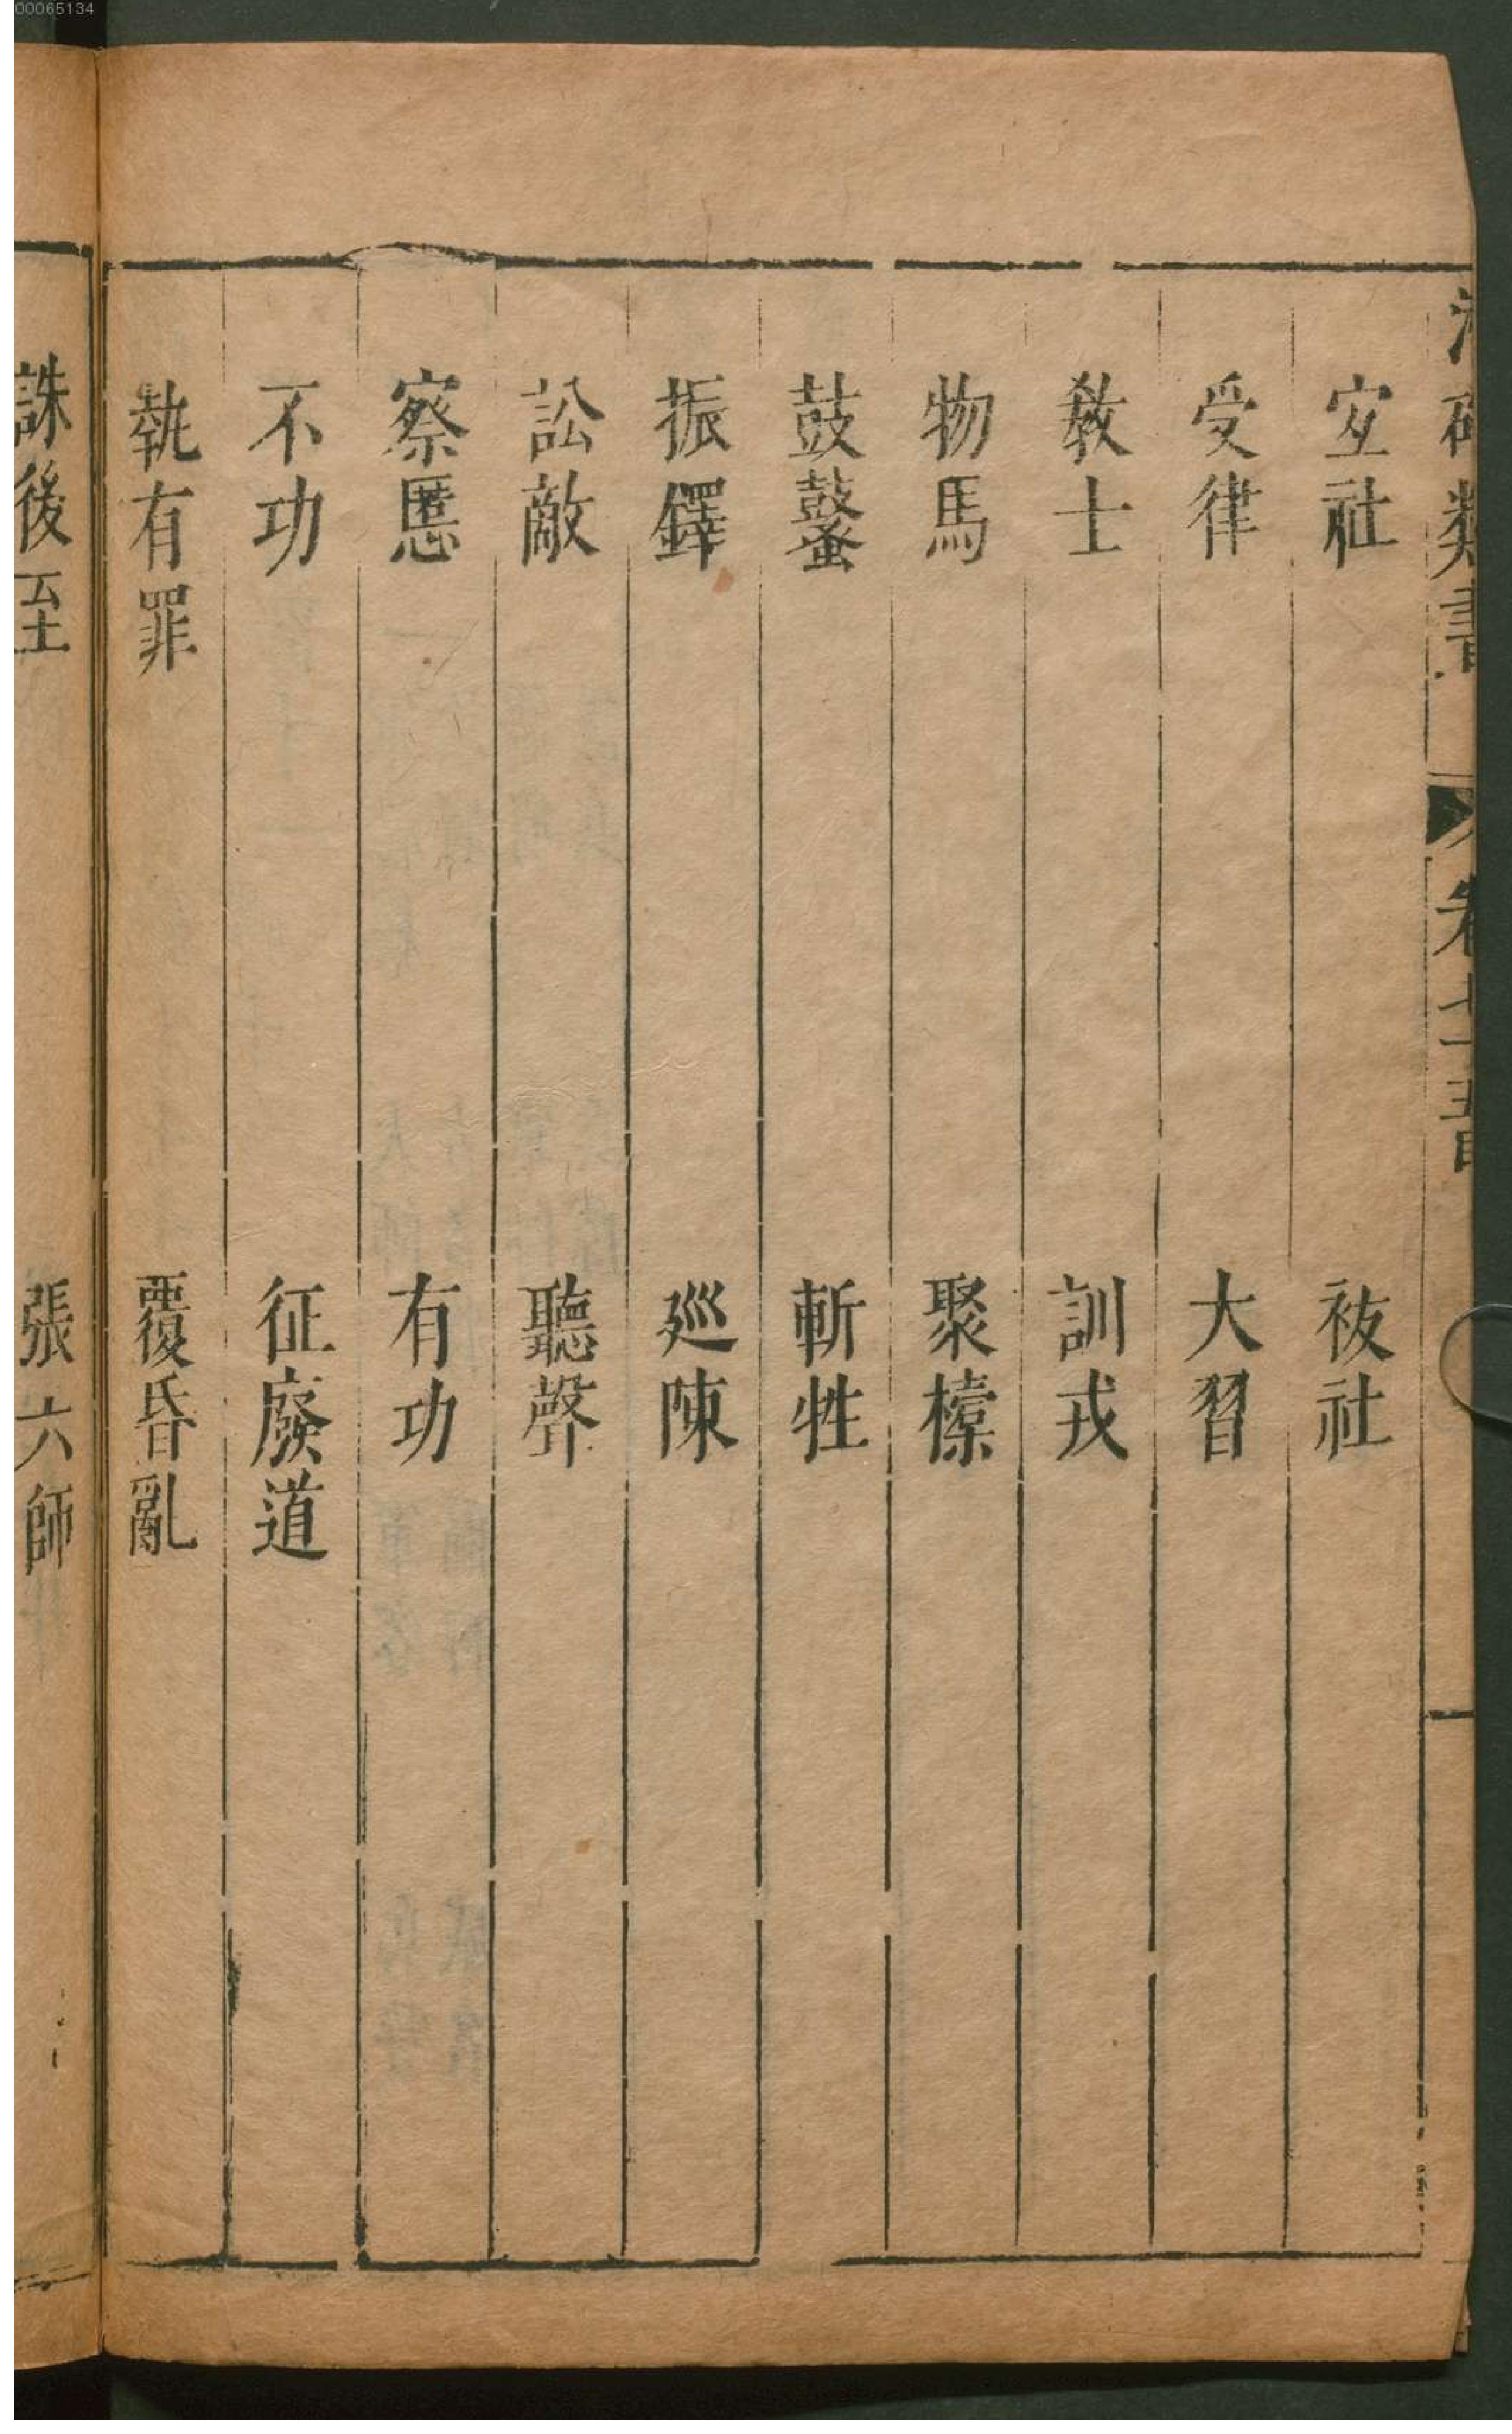 類書 卷七十五目
宐社 祓社
受律 大習
教士 訓戎
物馬 聚㯓
鼓鼜 斬牲
振鐸 廵陳
訟敵 聽聲
察慝 有功
不功 征廢道
執有罪 覆昏亂
誅後至 張六師
00065134